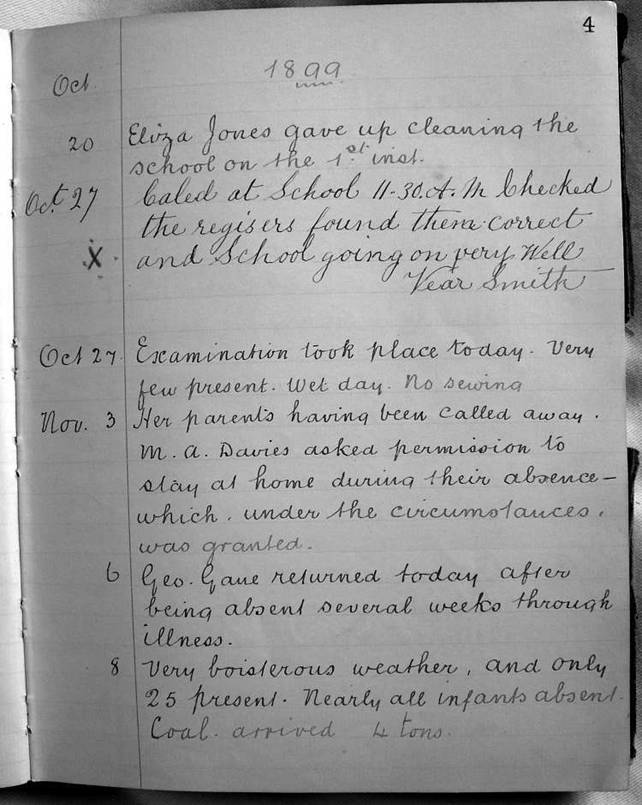 4
Oct 1899
20 Eliza Jones gave up cleaning the
school on the 1st inst.
Oct. 27 Caled at School 11-30. A. M Checked
the regisers found them correct
X and School going on very Well
Vear Smith
Oct 27. Examination took place today. Very
few present. Wet day. No sewing
Nov. 3 Her parents having been called away.
M. A. Davies asked permission to
stay at home during their absence—
which, under the circumstances,
was granted.
6 Geo. Gane returned today after
being absent several weeks through
illness.
8 Very boisterous weather, and only
25 present. Nearly all infants absent.
Coal. arrived 4 tons.